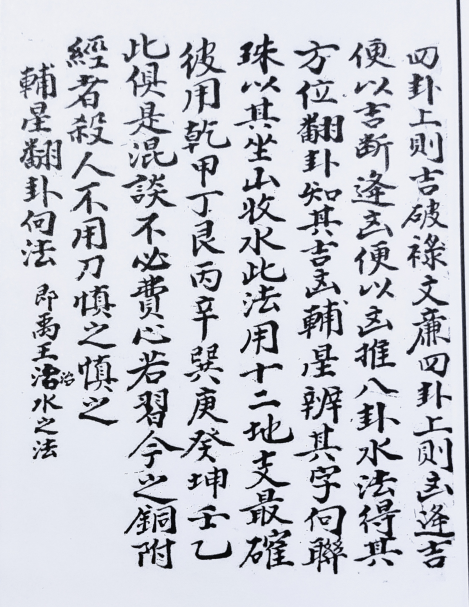 四卦上則吉破祿文廉四卦上則凶逢吉
便以吉斷逢凶便以凶推八卦水法得其
方位翻卦知其吉凶輔星辨其字句聯
珠以其坐山收水此法用十二地支最確
彼用乾甲丁艮丙辛巽庚癸坤壬乙
此俱是混談不必費心若習今之銅附
經者殺人不用刀慎之慎之
輔星翻卦句法 即禹王治水之法